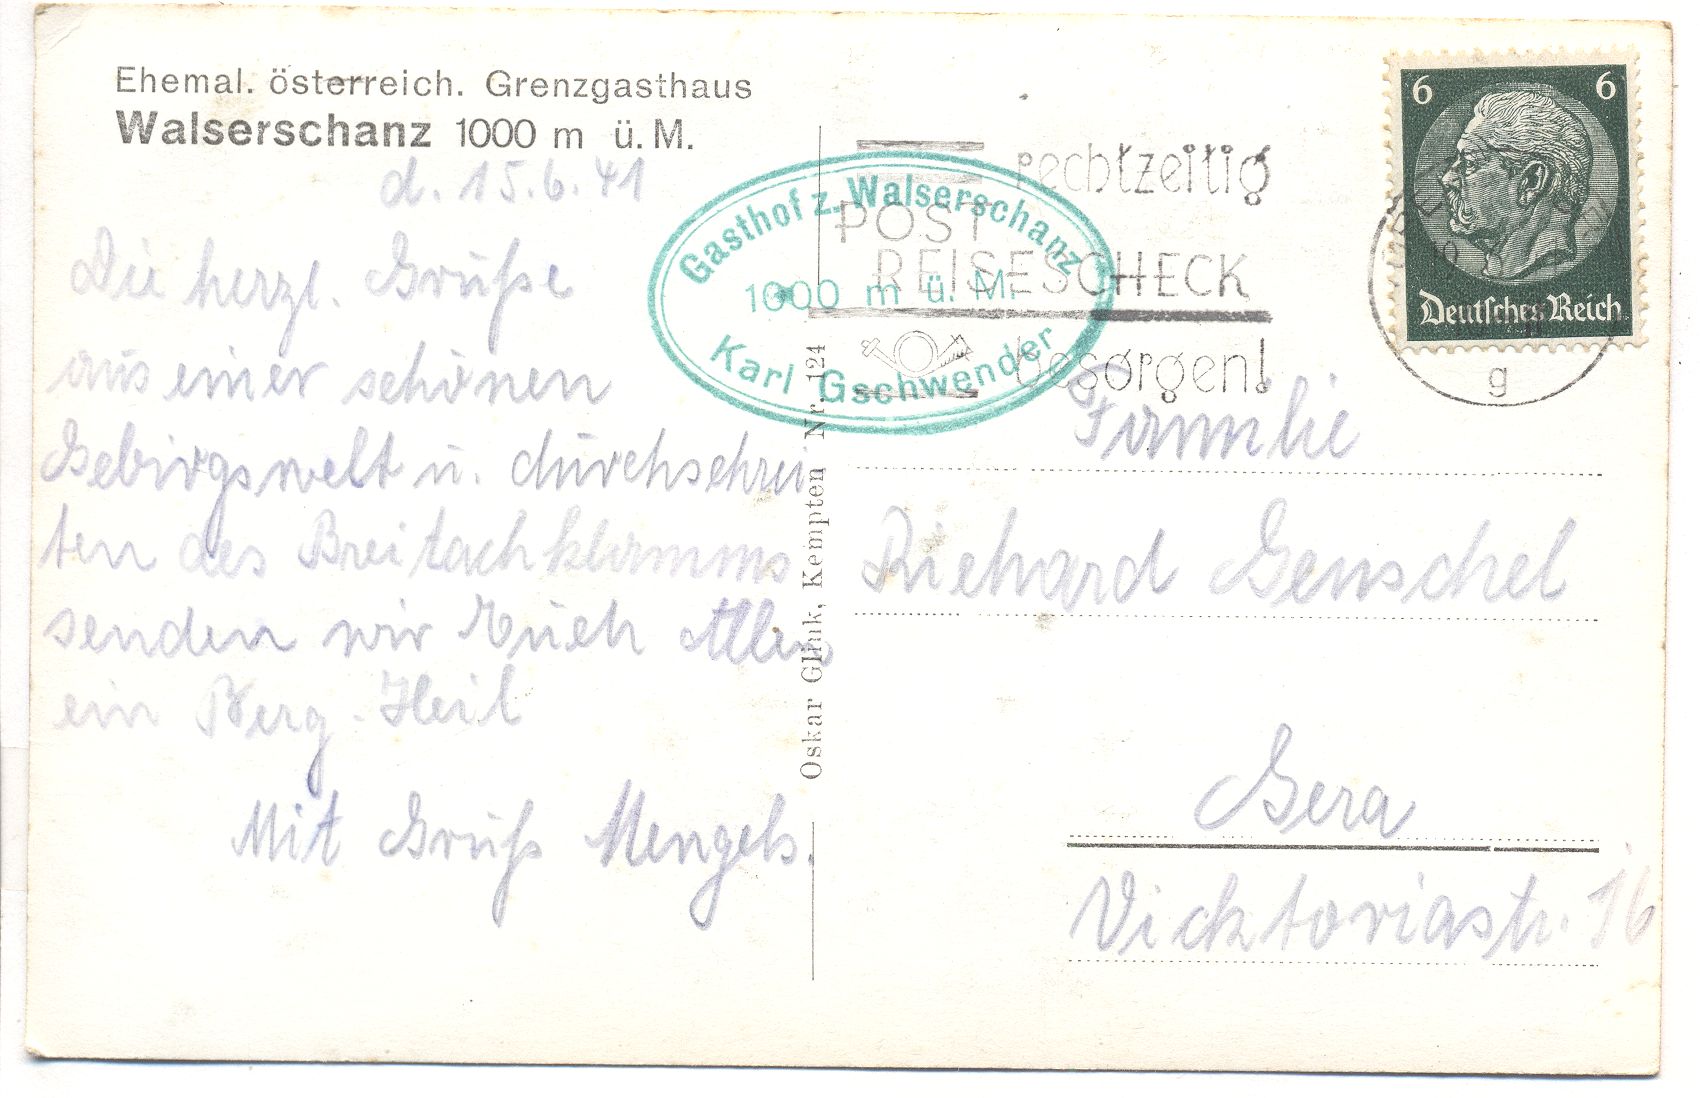 Ehemal. österreich. Grenzgasthaus
Walserschanz 1000 m ü. M.
d. 15.6.41
Die herzl. Grüße
aus einer schönen
Gebirgswelt u. durchschrei
ten des Breitachklamms
senden wir Euch Allen
ein Berg-Heil
Mit Gruß Mengels.
Oskar Glink, Kempten Nr. 124
Gasthof z. Walserschanz
1000 m ü. M.
Karl Gschwender
rechtzeitig
POST
REISESCHECK
besorgen!
6 6
Deutsches Reich
g
Familie
Richard Genschel
Gera
Vicktoriastr. 16